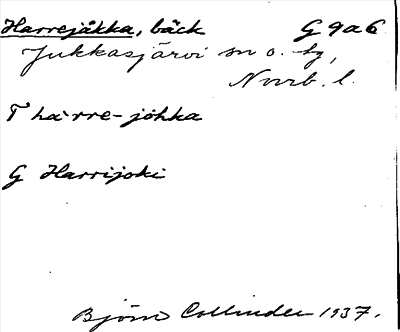 Harrejåkka, bäck G 9a6
Jukkasjärvi sn o. tg,
Norrb. l.
T ha·rre-jåhka
G Harrijoki
Björn Collinder 1937.